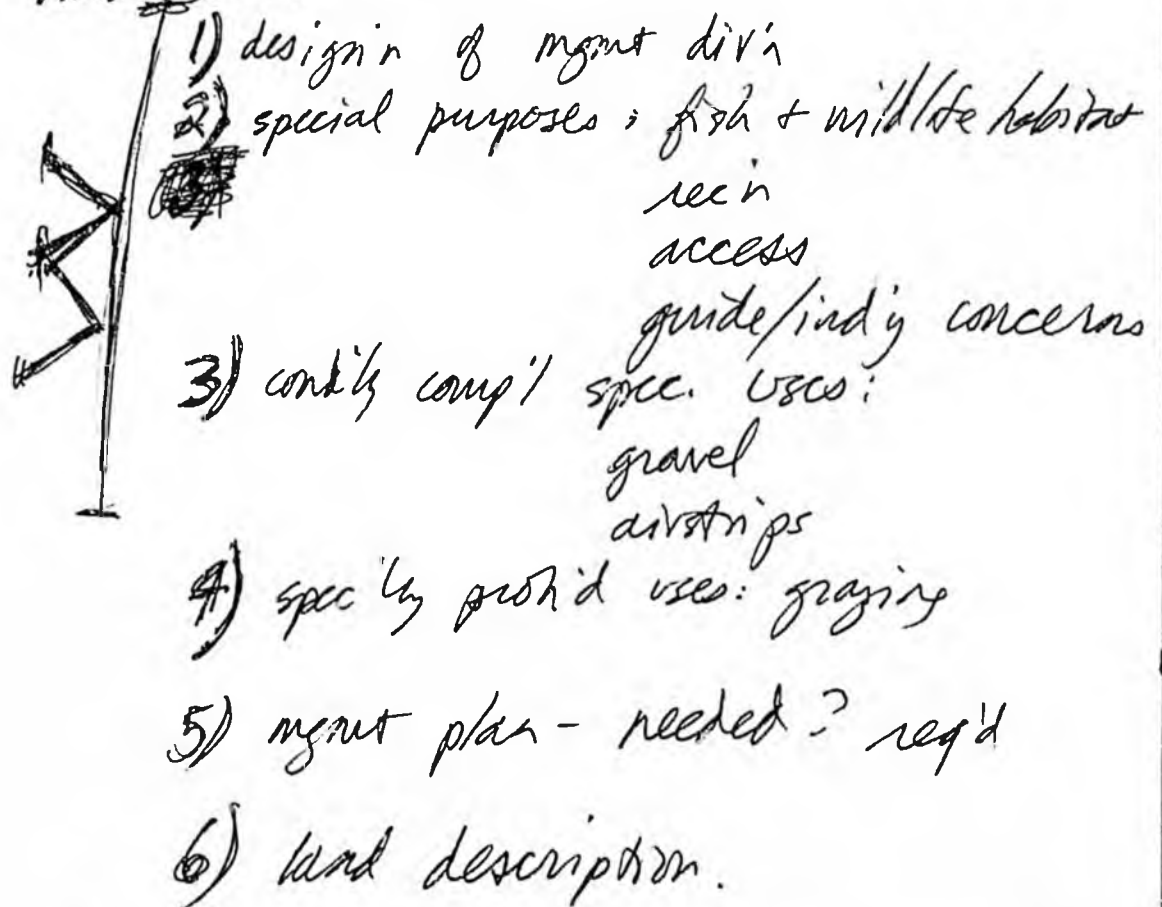 1) design'n of mgmt div'n
2) special purposes: fish + wildlife habitat
rec'n
access
guide/ind'y concerns
3) cond'ly comp'l spec. uses:
gravel
airstrips
4) spec'ly proh'd uses: grazing
5) mgmt plan - needed? req'd
6) land description.